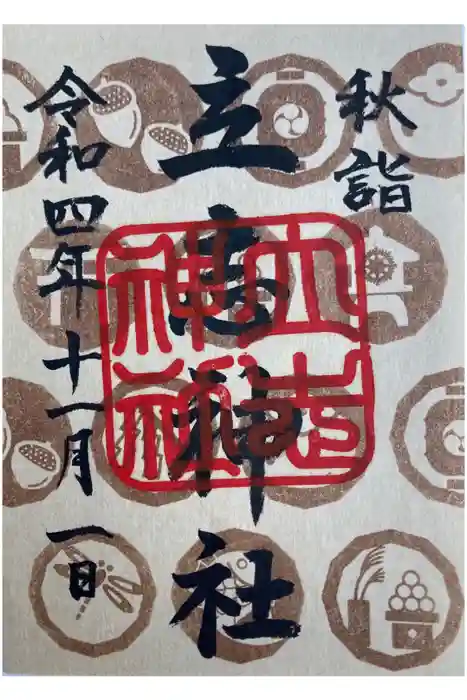 秋詣
立志神社
令和四年十一月一日
立志
神社